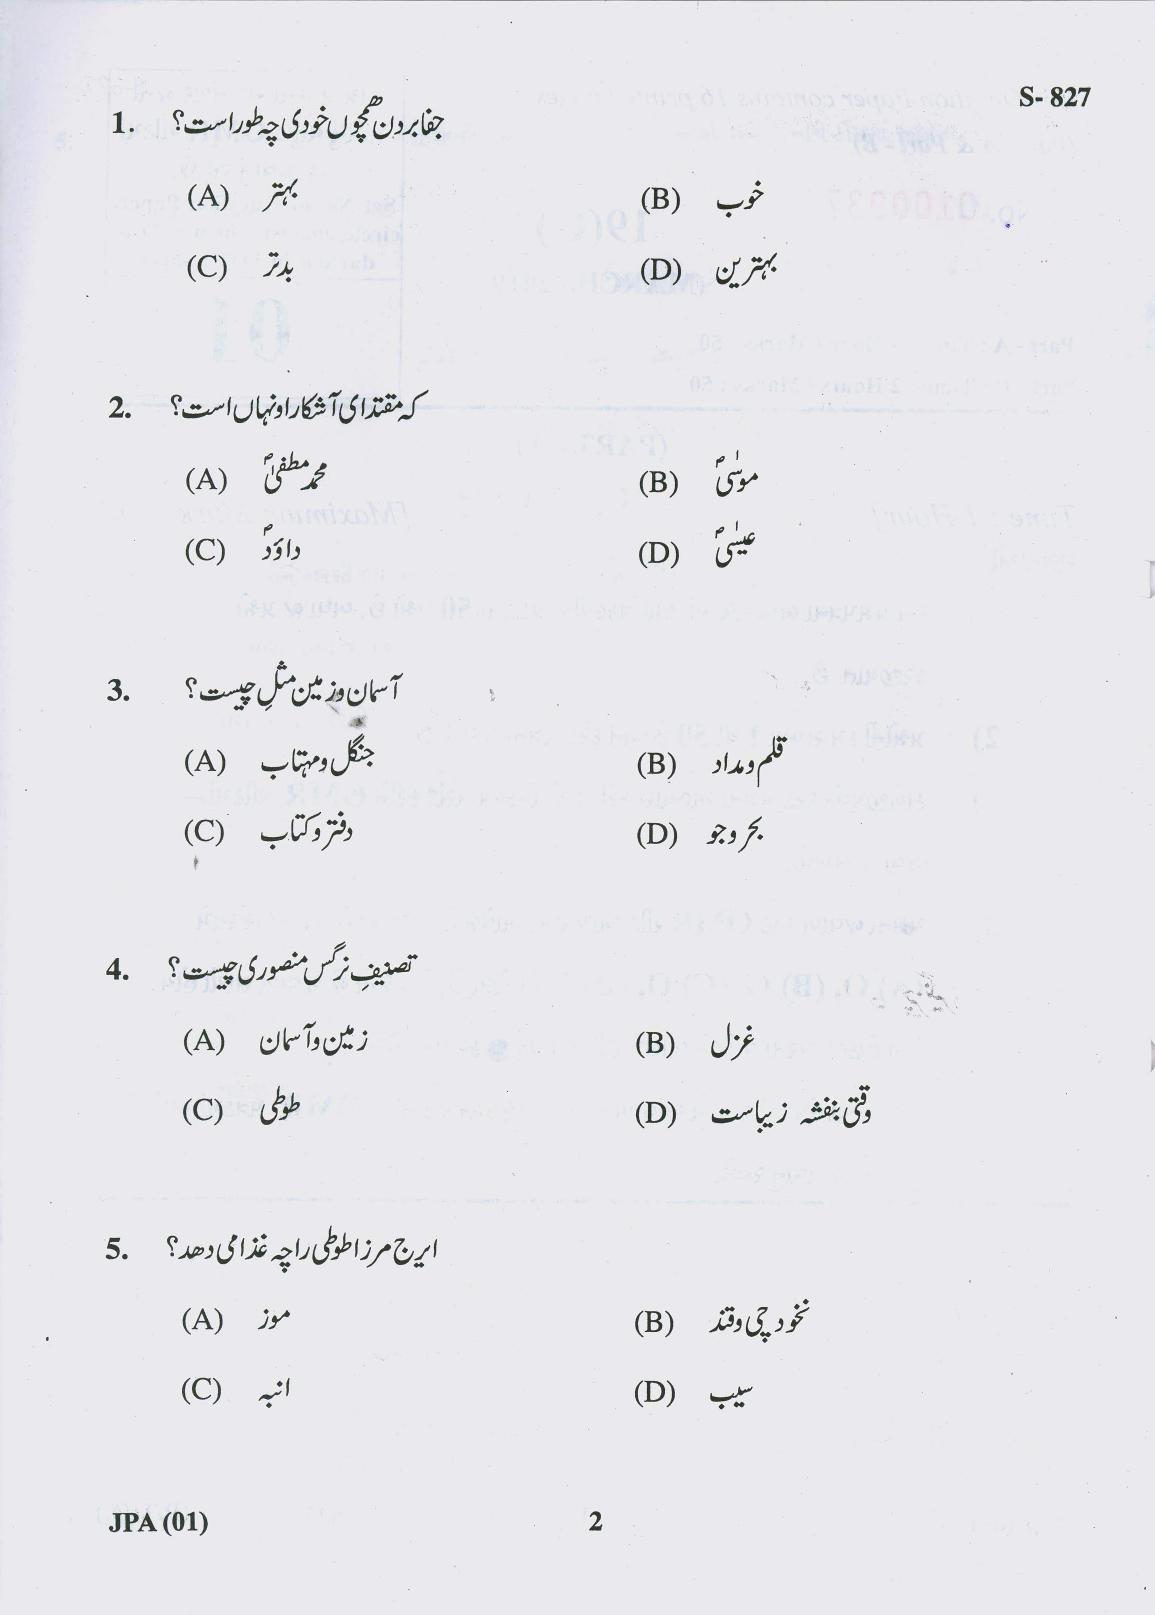 S- 827
1. جفا بردن همچوں خودی چہ طور است؟
(A) بہتر (B) خوب
(C) بدتر (D) بہترین
2. کہ مقتدای آشکارا و نہاں است؟
(A) محمد مطفیٰؐ (B) موسٰیؑ
(C) داؤدؑ (D) عیسٰیؑ
3. آسمان و زمین مثلِ چیست؟
(A) جنگل و مہتاب (B) قلم و مداد
(C) دفتر و کتاب (D) بحر و جو
4. تصنیفِ نرگس منصوری چیست؟
(A) زمین و آسمان (B) غزل
(C) طوطی (D) وقتی بنفشہ زیباست
5. ایرج مرزا طوطی را چہ غذا می دهد؟
(A) موز (B) نخودچی و قند
(C) انبہ (D) سیب
JPA (01) 2